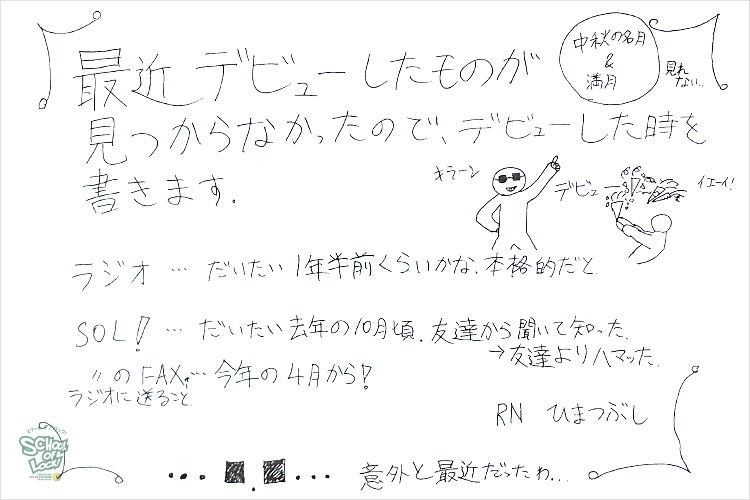 最近デビューしたものが
見つからなかったので、デビューした時を
書きます.
中秋の名月
&
満月
見れ
ない…
キラーン
デビュー
イエーイ!
ラジオ … だいたい1年半前くらいかな.本格的だと.
SOL! … だいたい去年の10月頃.友達から聞いて知った.
→友達よりハマッた.
〃のFAX … 今年の4月から!
ラジオに送ること.
RN ひまつぶし
SCHOOL
OF
LOCK!
… ■.■ … 意外と最近だったわ…